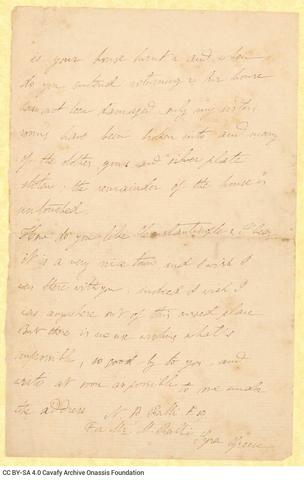 is your house burnt & and when
do you intend returning & Our house
has not been damaged only my sisters
rooms have been broken into and many
of the clothes gone and silver plate
stolen; the remainder of the house is
untouched.
How do you like I hear
it is a very nice town and I wish I
was there with you, indeed I wish I
was anywhere out of this place
But there is no use wishing what's
impossible, so good by to you, and
write as soon as possible to me under
the address N. P. Ralli
For Mr. Ralli
Syra Greece
CC BY-SA 4.0 Cavafy Archive Onassis Foundation